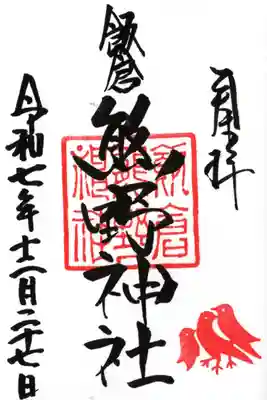 奉拝
飯倉
熊野神社
飯倉熊野神社
令和七年十一月二十七日